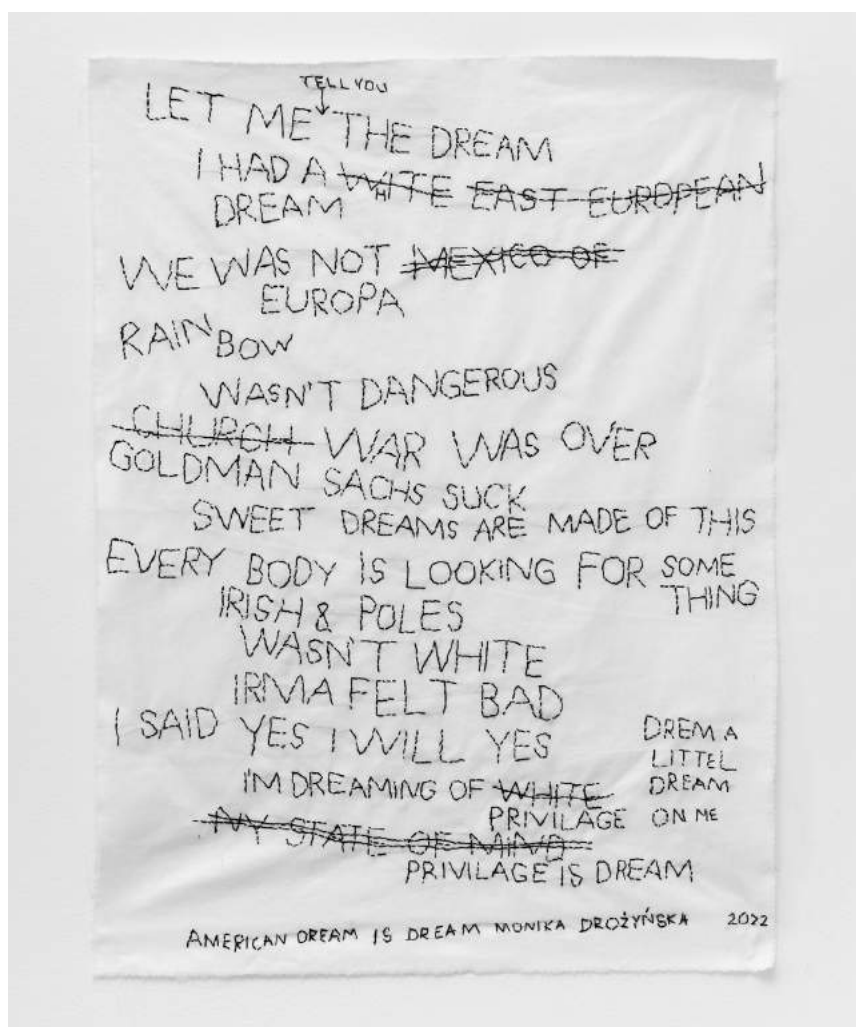 TELL YOU
LET ME THE DREAM
I HAD A WHITE EAST EUROPEAN
DREAM
WE WAS NOT MEXICO OF
EUROPA
RAIN BOW
WASN'T DANGEROUS
CHURCH WAR WAS OVER
GOLDMAN SACHS SUCK
SWEET DREAMS ARE MADE OF THIS
EVERY BODY IS LOOKING FOR SOME
THING
IRISH & POLES
WASN'T WHITE
IRMA FELT BAD
I SAID YES I WILL YES
DREM A
LITTEL
DREAM
ON ME
I'M DREAMING OF WHITE
PRIVILAGE
NY STATE OF MIND
PRIVILAGE IS DREAM
AMERICAN DREAM IS DREAM MONIKA DROŻYŃSKA 2022